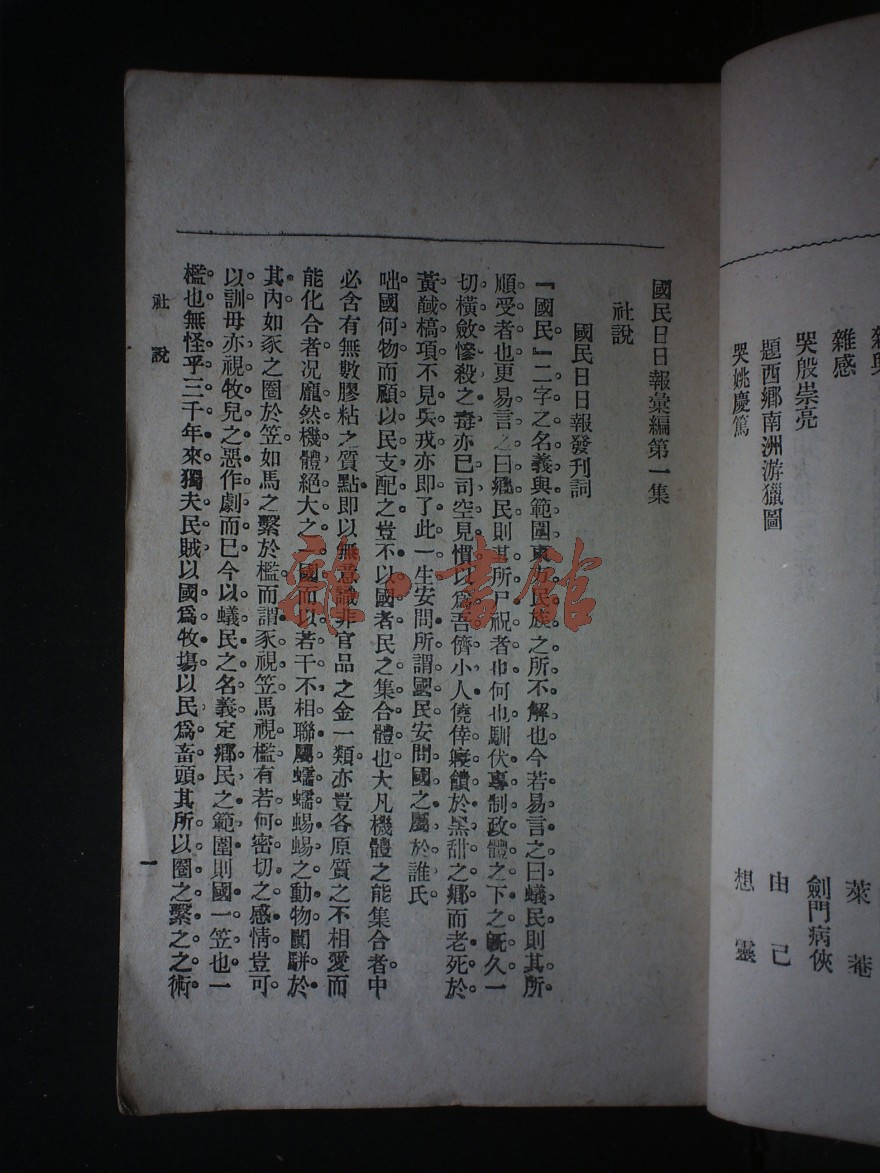 雜感
哭殷崇亮
題西鄉南洲游獵圖
哭姚慶篤
萊菴
劍門病俠
由己
想靈
國民日日報彙編第一集
社說
國民日日報發刊詞
『國民』二字之名義與範圍東方民族之所不解也今若易言之曰蟻民則其所
順受者也更易言之曰鄉民則其所尸祝者也何也馴伏專制政體之下之旣久一
切橫斂慘殺之毒亦已司空見慣以爲吾儕小人僥倖寢饋於黑甜之鄉而老死於
黃馘槁項不見兵戎亦即了此一生安問所謂國民安問國之屬於誰氏
咄國何物而顧以民支配之豈不以國者民之集合體也大凡機體之能集合者中
必含有無數膠粘之質點即以無意識非官品之金一類亦豈各原質之不相愛而
能化合者况龐然機體絕大之國而以若干不相聯屬蠕蠕蜴蜴之動物闐駢於
其內如豕之圈於笠如馬之繫於檻而謂豕視笠馬視檻有若何密切之感情豈可
以訓毋亦視牧兒之惡作劇而已今以蟻民之名義定鄉民之範圍則國一笠也一
檻也無怪乎三千年來獨夫民賊以國爲牧塲以民爲畜頭其所以圈之繫之之術
社說
一
雜·書館